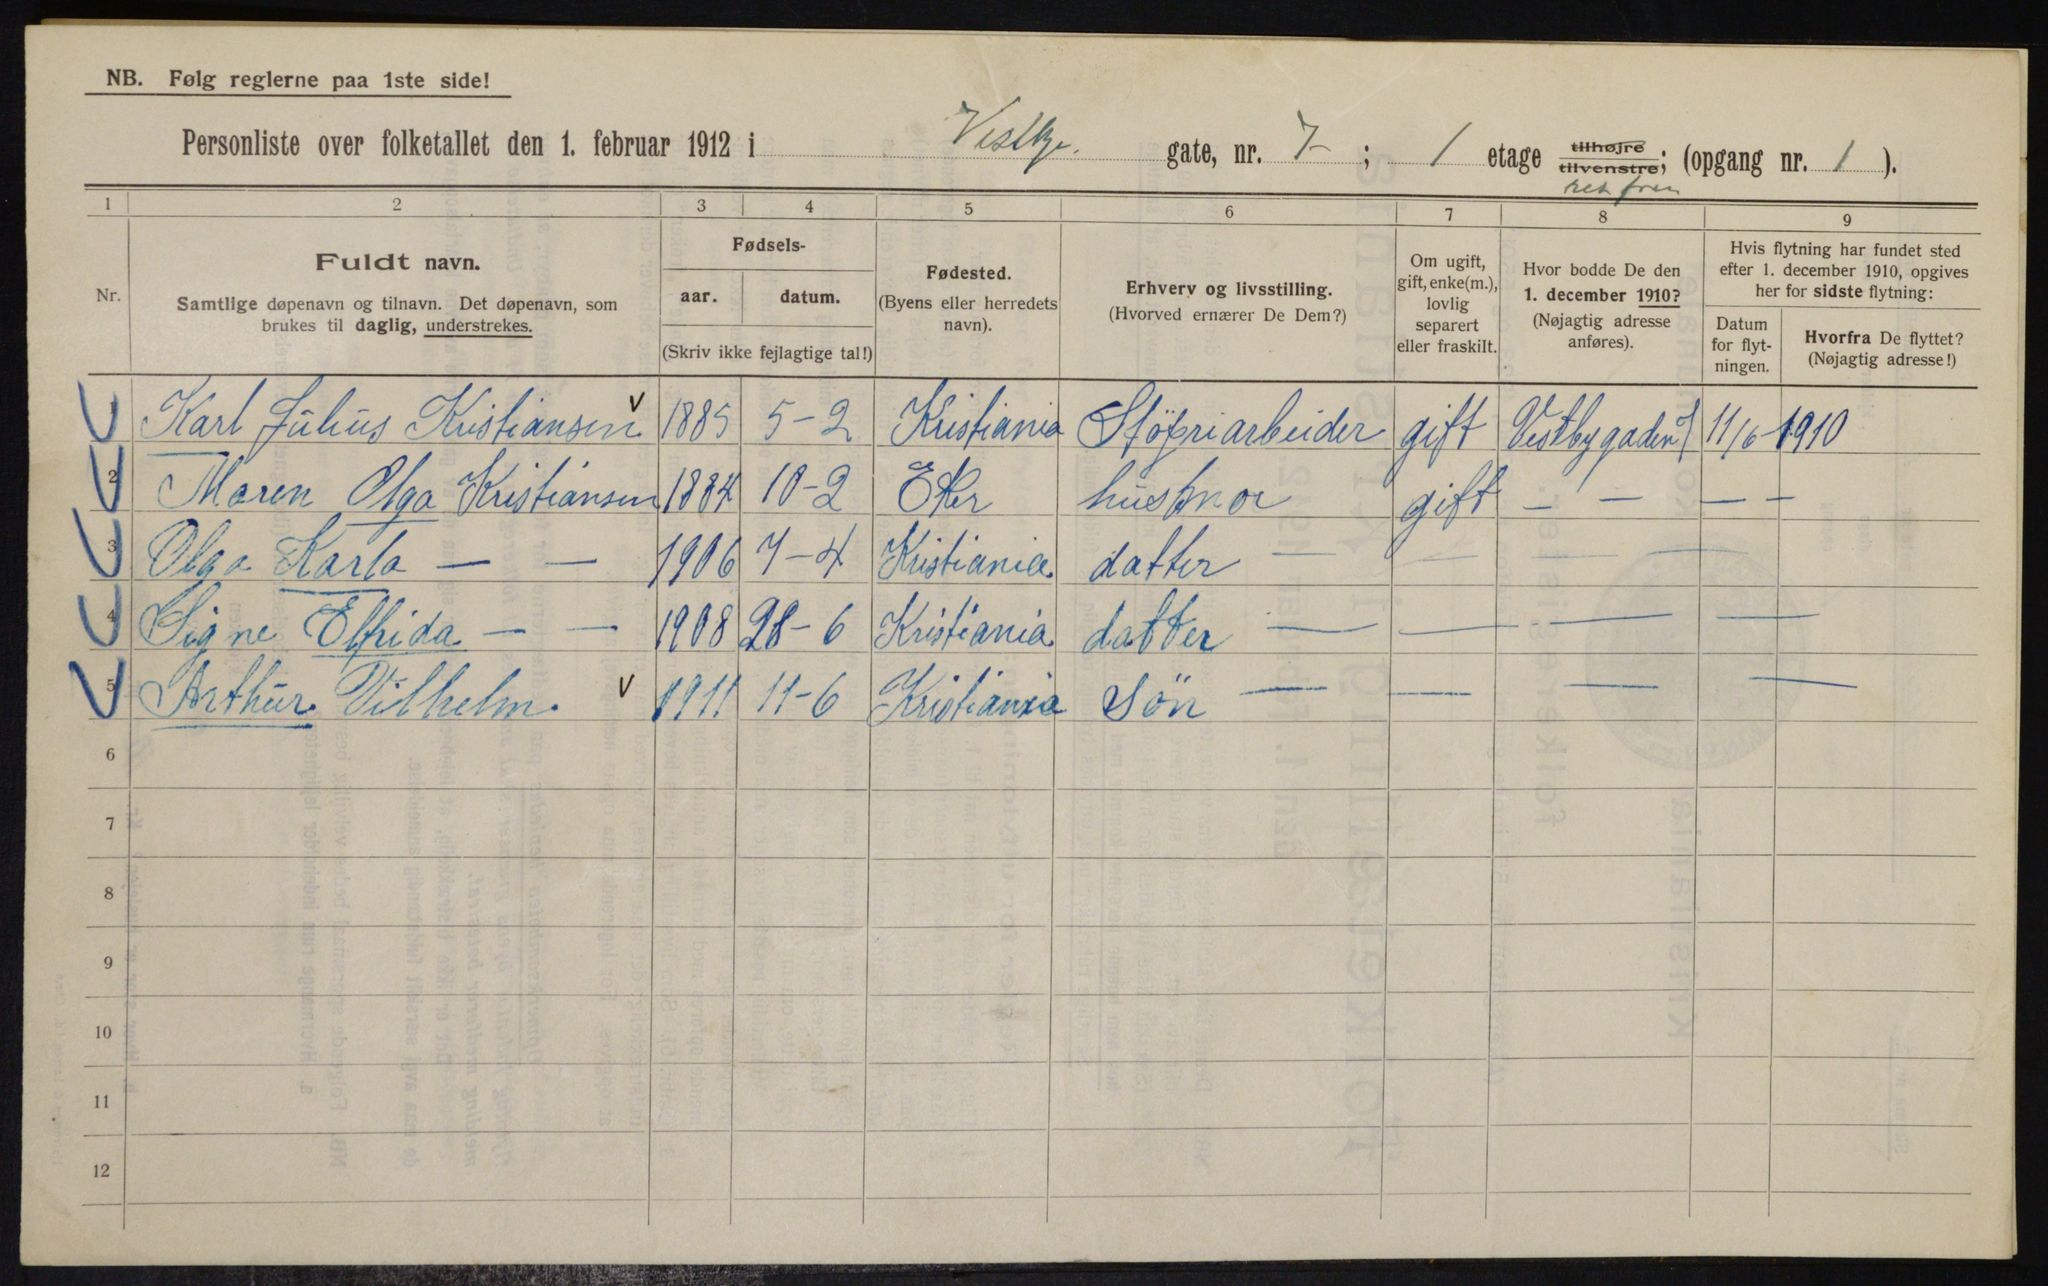 NB. Følg reglerne paa 1ste side!
Personliste over folketallet den 1. februar 1912 i Vestby. gate, nr. 7 ; 1 etage tilhøjre tilvenstre; (opgang nr. 1 ).
ret frem
1 2 3 4 5 6 7 8 9
Nr.
Fuldt navn.
Samtlige døpenavn og tilnavn. Det døpenavn, som
brukes til daglig, understrekes.
Fødsels-
aar. datum.
(Skriv ikke fejlagtige tal!)
Fødested.
(Byens eller herredets
navn).
Erhverv og livsstilling.
(Hvorved ernærer De Dem?)
Om ugift,
gift, enke(m.),
lovlig
separert
eller fraskilt.
Hvor bodde De den
1. december 1910?
(Nøjagtig adresse
anføres).
Hvis flytning har fundet sted
efter 1. december 1910, opgives
her for sidste flytning:
Datum
for flyt-
ningen.
Hvorfra De flyttet?
(Nøjagtig adresse!)
1 Karl Julius Kristiansen 1885 5-2 Kristiania Støperiarbeider gift Vestbygaden 11/6-1910
2 Maren Olga Kristiansen 1884 10-2 Eker husmor gift - — — -
3 Olga Karla — — 1906 7-4 Kristiania datter — — — —
4 Signe Elfrida — — 1908 28-6 Kristiania datter — — — —
5 Arthur Vilhelm. 1911 11-6 Kristiania Søn — — — —
6
7
8
9
10
11
12